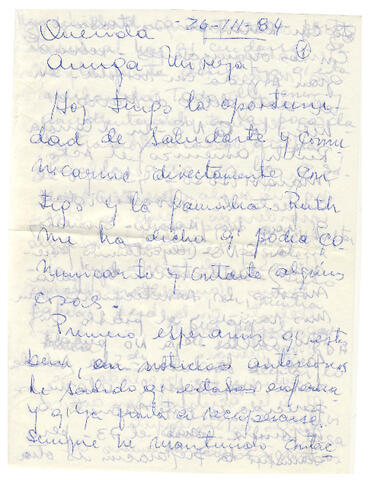 -26-III-84
Querida ①
Amiga Mireya
Hoy tengo la oportuni-
dad de saludarte y comu
nicarme directamente con
tigo y la familia. Ruth
me ha dicho q' podia co
municarte y contarte algunas
cosas.-
Primero esperamos q' estes
bien, en noticias anteriores
he sabido q' estabas enferma
y q' ya pronto a recuperarse,
siempre he mantenido contac-